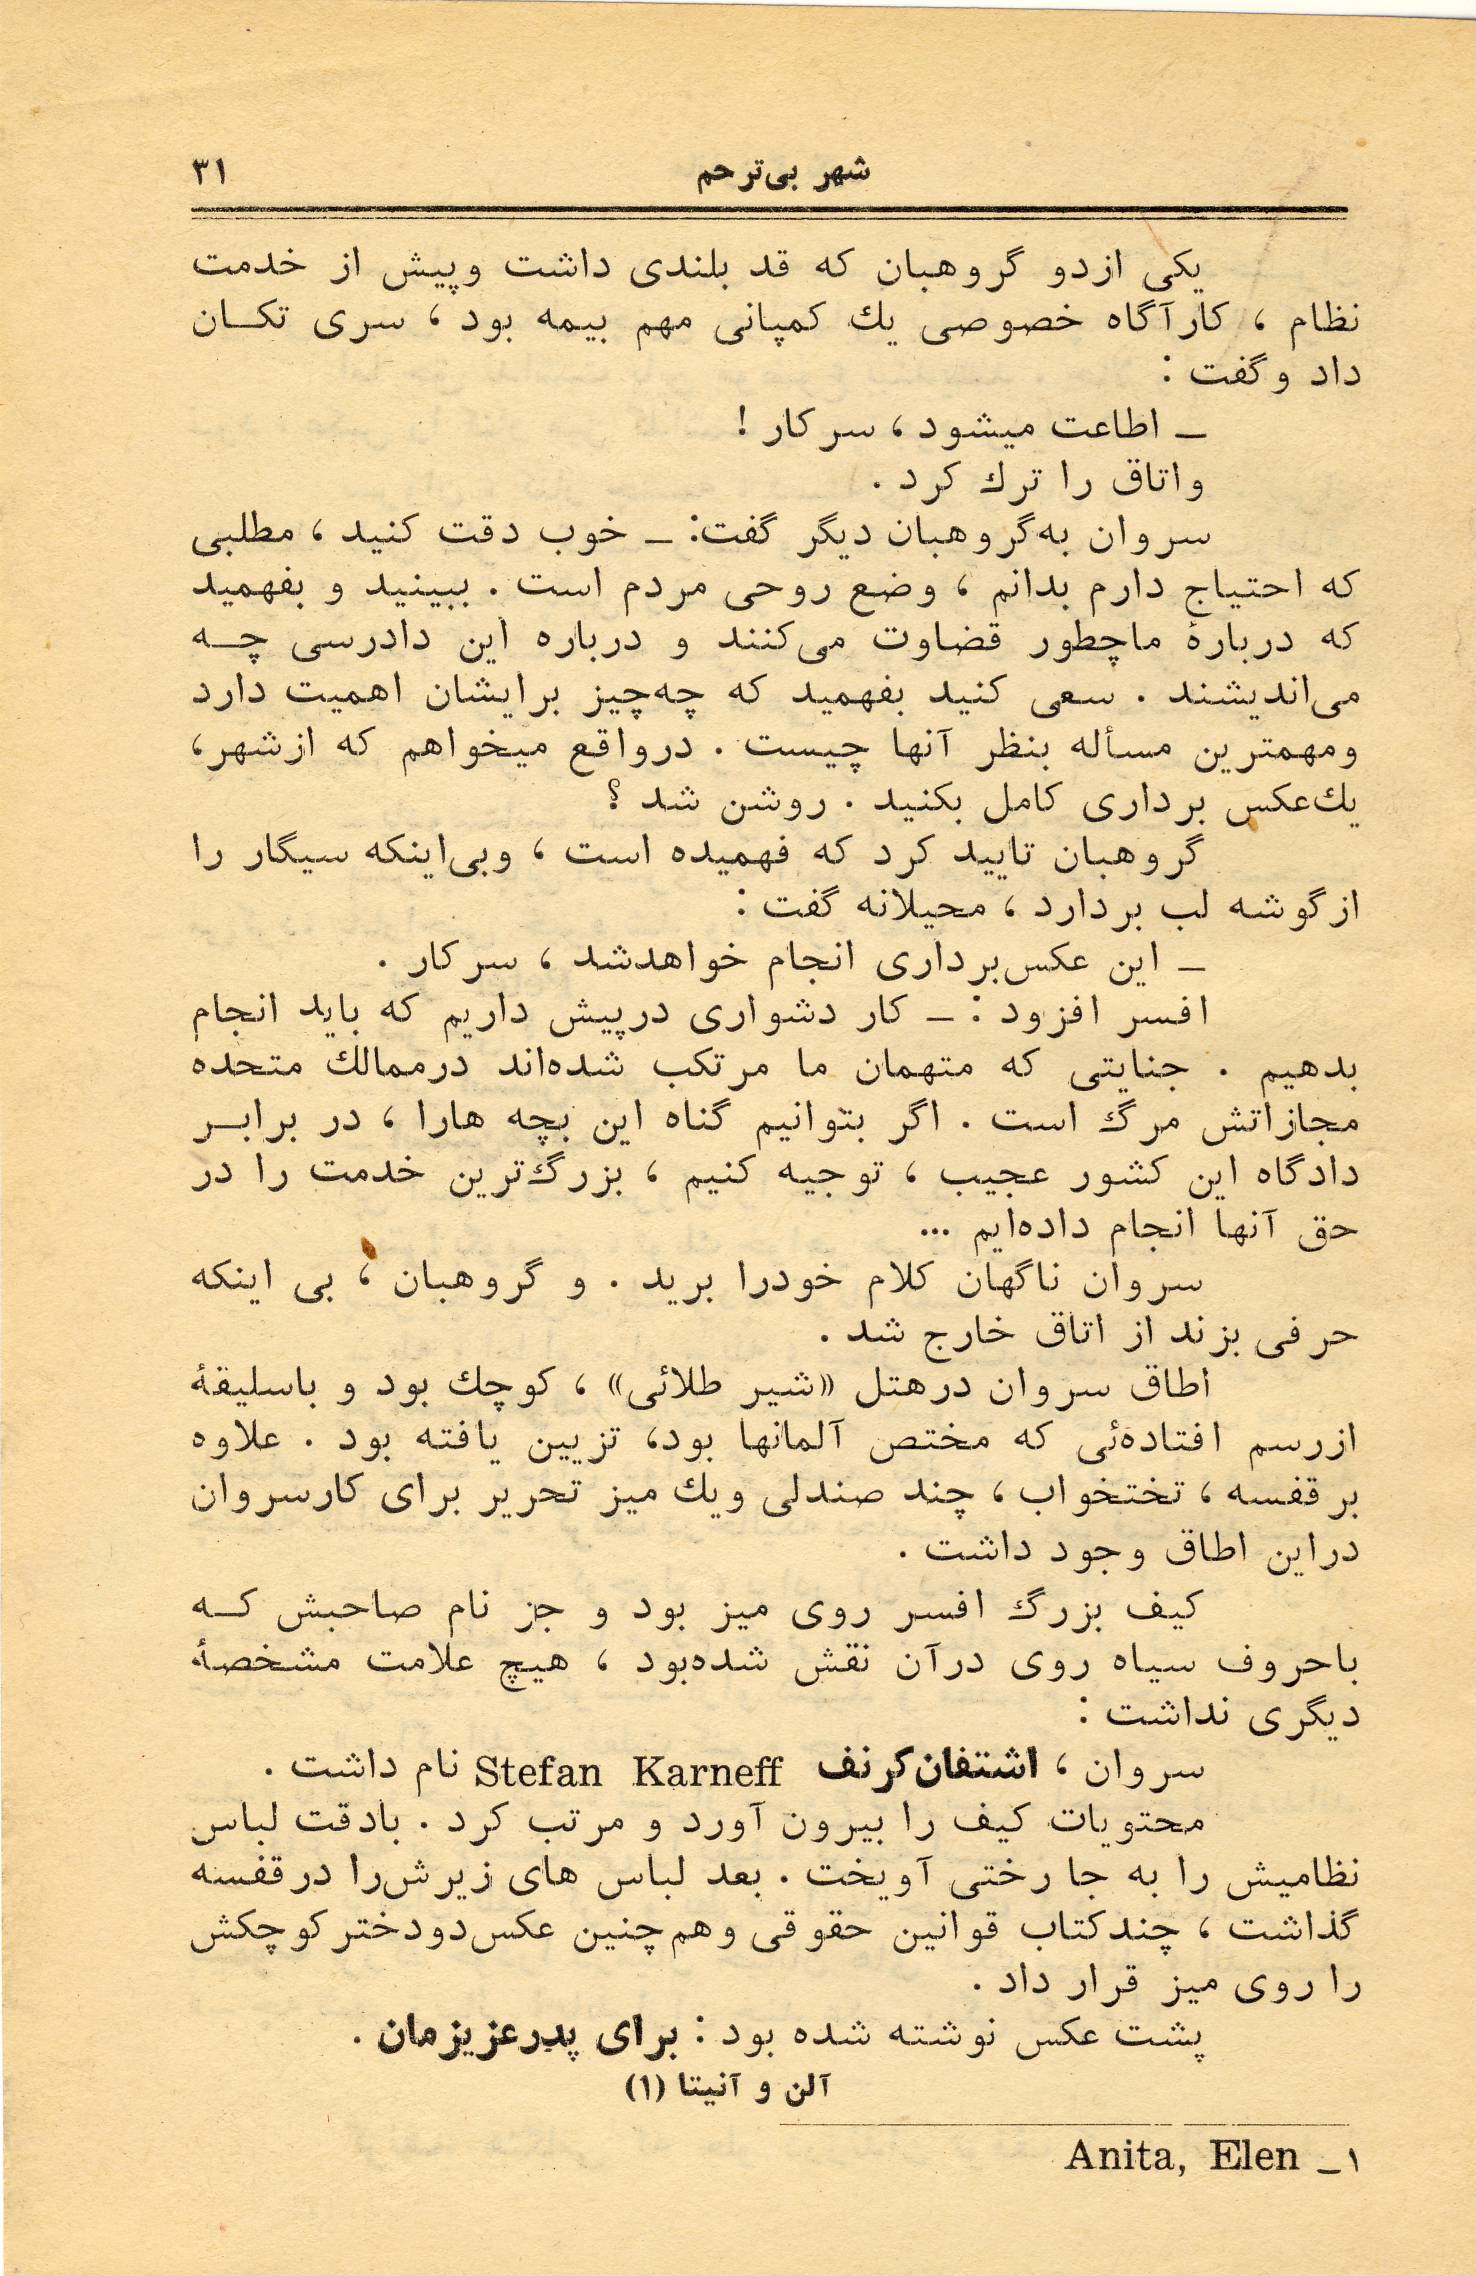 شهر بی‌ترحم ۳۱
یکی ازدو گروهبان که قد بلندی داشت وپیش از خدمت
نظام ، کارآگاه خصوصی یك کمپانی مهم بیمه بود ، سری تکـان
داد وگفت :
ـ اطاعت میشود ، سرکار !
واتاق را ترك کرد .
سروان به‌گروهبان دیگر گفت: ـ خوب دقت کنید ، مطلبی
که احتیاج دارم بدانم ، وضع روحی مردم است . ببینید و بفهمید
که دربارهٔ ماچطور قضاوت می‌کنند و درباره این دادرسی چـه
می‌اندیشند . سعی کنید بفهمید که چه‌چیز برایشان اهمیت دارد
ومهمترین مسأله بنظر آنها چیست . درواقع میخواهم که ازشهر،
یك‌عکس برداری کامل بکنید . روشن شد ؟
گروهبان تایید کرد که فهمیده است ، وبی‌اینکه سیگار را
ازگوشه لب بردارد ، محیلانه گفت :
ـ این عکس‌برداری انجام خواهدشد ، سرکار .
افسر افزود : ـ کار دشواری درپیش داریم که باید انجام
بدهیم . جنایتی که متهمان ما مرتکب شده‌اند درممالك متحده
مجازاتش مرگ است . اگر بتوانیم گناه این بچه هارا ، در برابـر
دادگاه این کشور عجیب ، توجیه کنیم ، بزرگ‌ترین خدمت را در
حق آنها انجام داده‌ایم ...
سروان ناگهان کلام خودرا برید . و گروهبان ، بی اینکه
حرفی بزند از اتاق خارج شد .
اطاق سروان درهتل «شیر طلائی» ، کوچك بود و باسلیقهٔ
ازرسم افتاده‌ئی که مختص آلمانها بود، تزیین یافته بود . علاوه
برقفسه ، تختخواب ، چند صندلی ویك میز تحریر برای کارسروان
دراین اطاق وجود داشت .
کیف بزرگ افسر روی میز بود و جز نام صاحبش کـه
باحروف سیاه روی درآن نقش شده‌بود ، هیچ علامت مشخصهٔ
دیگری نداشت :
سروان ، اشتفان‌کرنف Stefan Karneff نام داشت .
محتویات کیف را بیرون آورد و مرتب کرد . بادقت لباس
نظامیش را به جا رختی آویخت . بعد لباس های زیرش‌را درقفسه
گذاشت ، چندکتاب قوانین حقوقی وهم‌چنین عکس‌دودخترکوچکش
را روی میز قرار داد .
پشت عکس نوشته شده بود : برای پدرعزیزمان .
آلن و آنیتا (۱)
۱ـ Anita, Elen